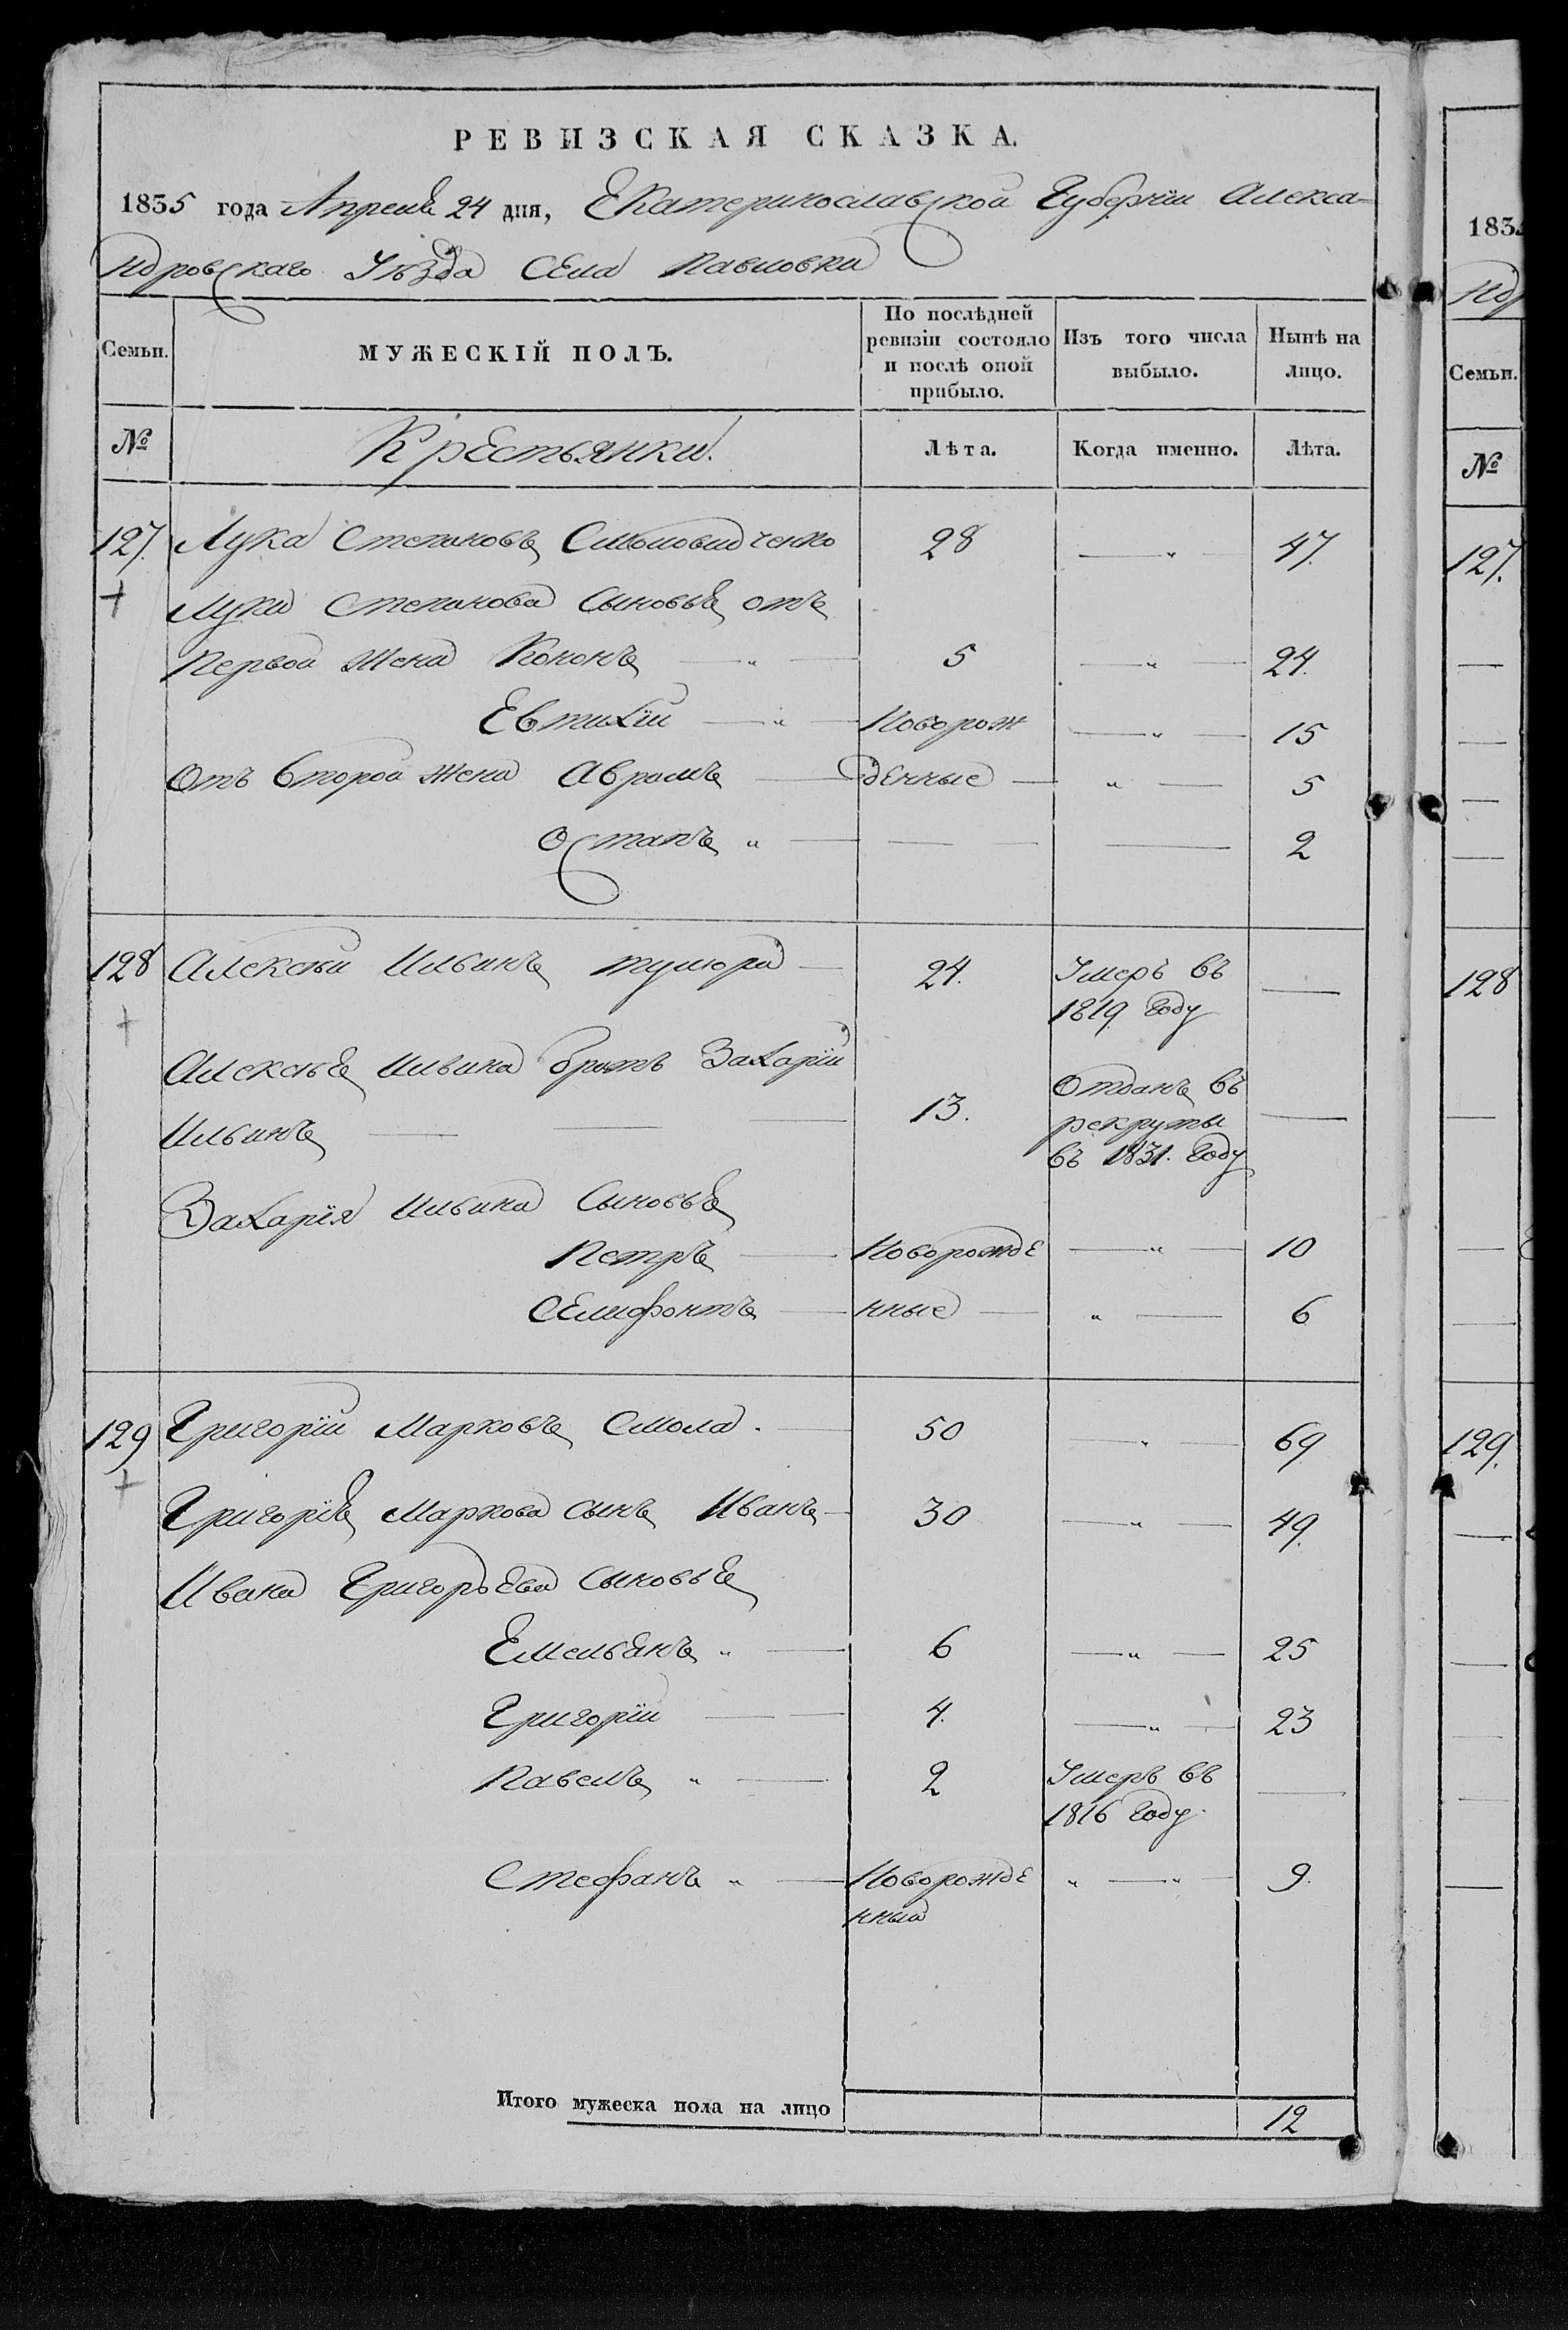 РЕВИЗСКАЯ СКАЗКА.
1835 года Апреля 24 дня, Екатеринославской Губернїи Алекса-
ндровскаго Уѣзда Села Павловки
Семьи. МУЖЕСКІЙ ПОЛЪ. По послѣдней ревизіи состояло и послѣ оной прибыло. Изъ того числа выбыло. Нынѣ на лицо.
№ Крестьянки. Лѣта. Когда именно. Лѣта.
127. Лука Степановъ 28 — " — 47.
Луки Степанова Сыновья отъ
Первой Жены Кононъ — " — 5 — " — 24.
Евтихїй — " — Новорож — " — 15
Отъ Второй Жены Аврамъ — денные — " — 5
Остапъ " — — — 2
128 Алексѣй Ильинъ — 24. Умеръ въ —
1819 Году
Алексѣя Ильина братъ Захарїй
Ильинъ — — — 13. Отданъ въ рекруты въ 1831. Году —
Захарїя Ильина Сыновья
Петръ — Новорожде — " — 10
Селифонтъ — нные — " — 6
129 Григорїй Марковъ Смола. — 50 — " — 69
Григорїя Маркова сынъ Иванъ — 30 — " — 49.
Ивана Григорьева Сыновья
Емельянъ " — 6 — " — 25
Григорїй — — 4. — " — 23
Павелъ " — 2 Умеръ въ —
1816 Году.
Стефанъ " — Новорожде " — " — 9.
нный
Итого мужеска пола на лицо 12
183
нд
Семьи.
№
127.
128
129.